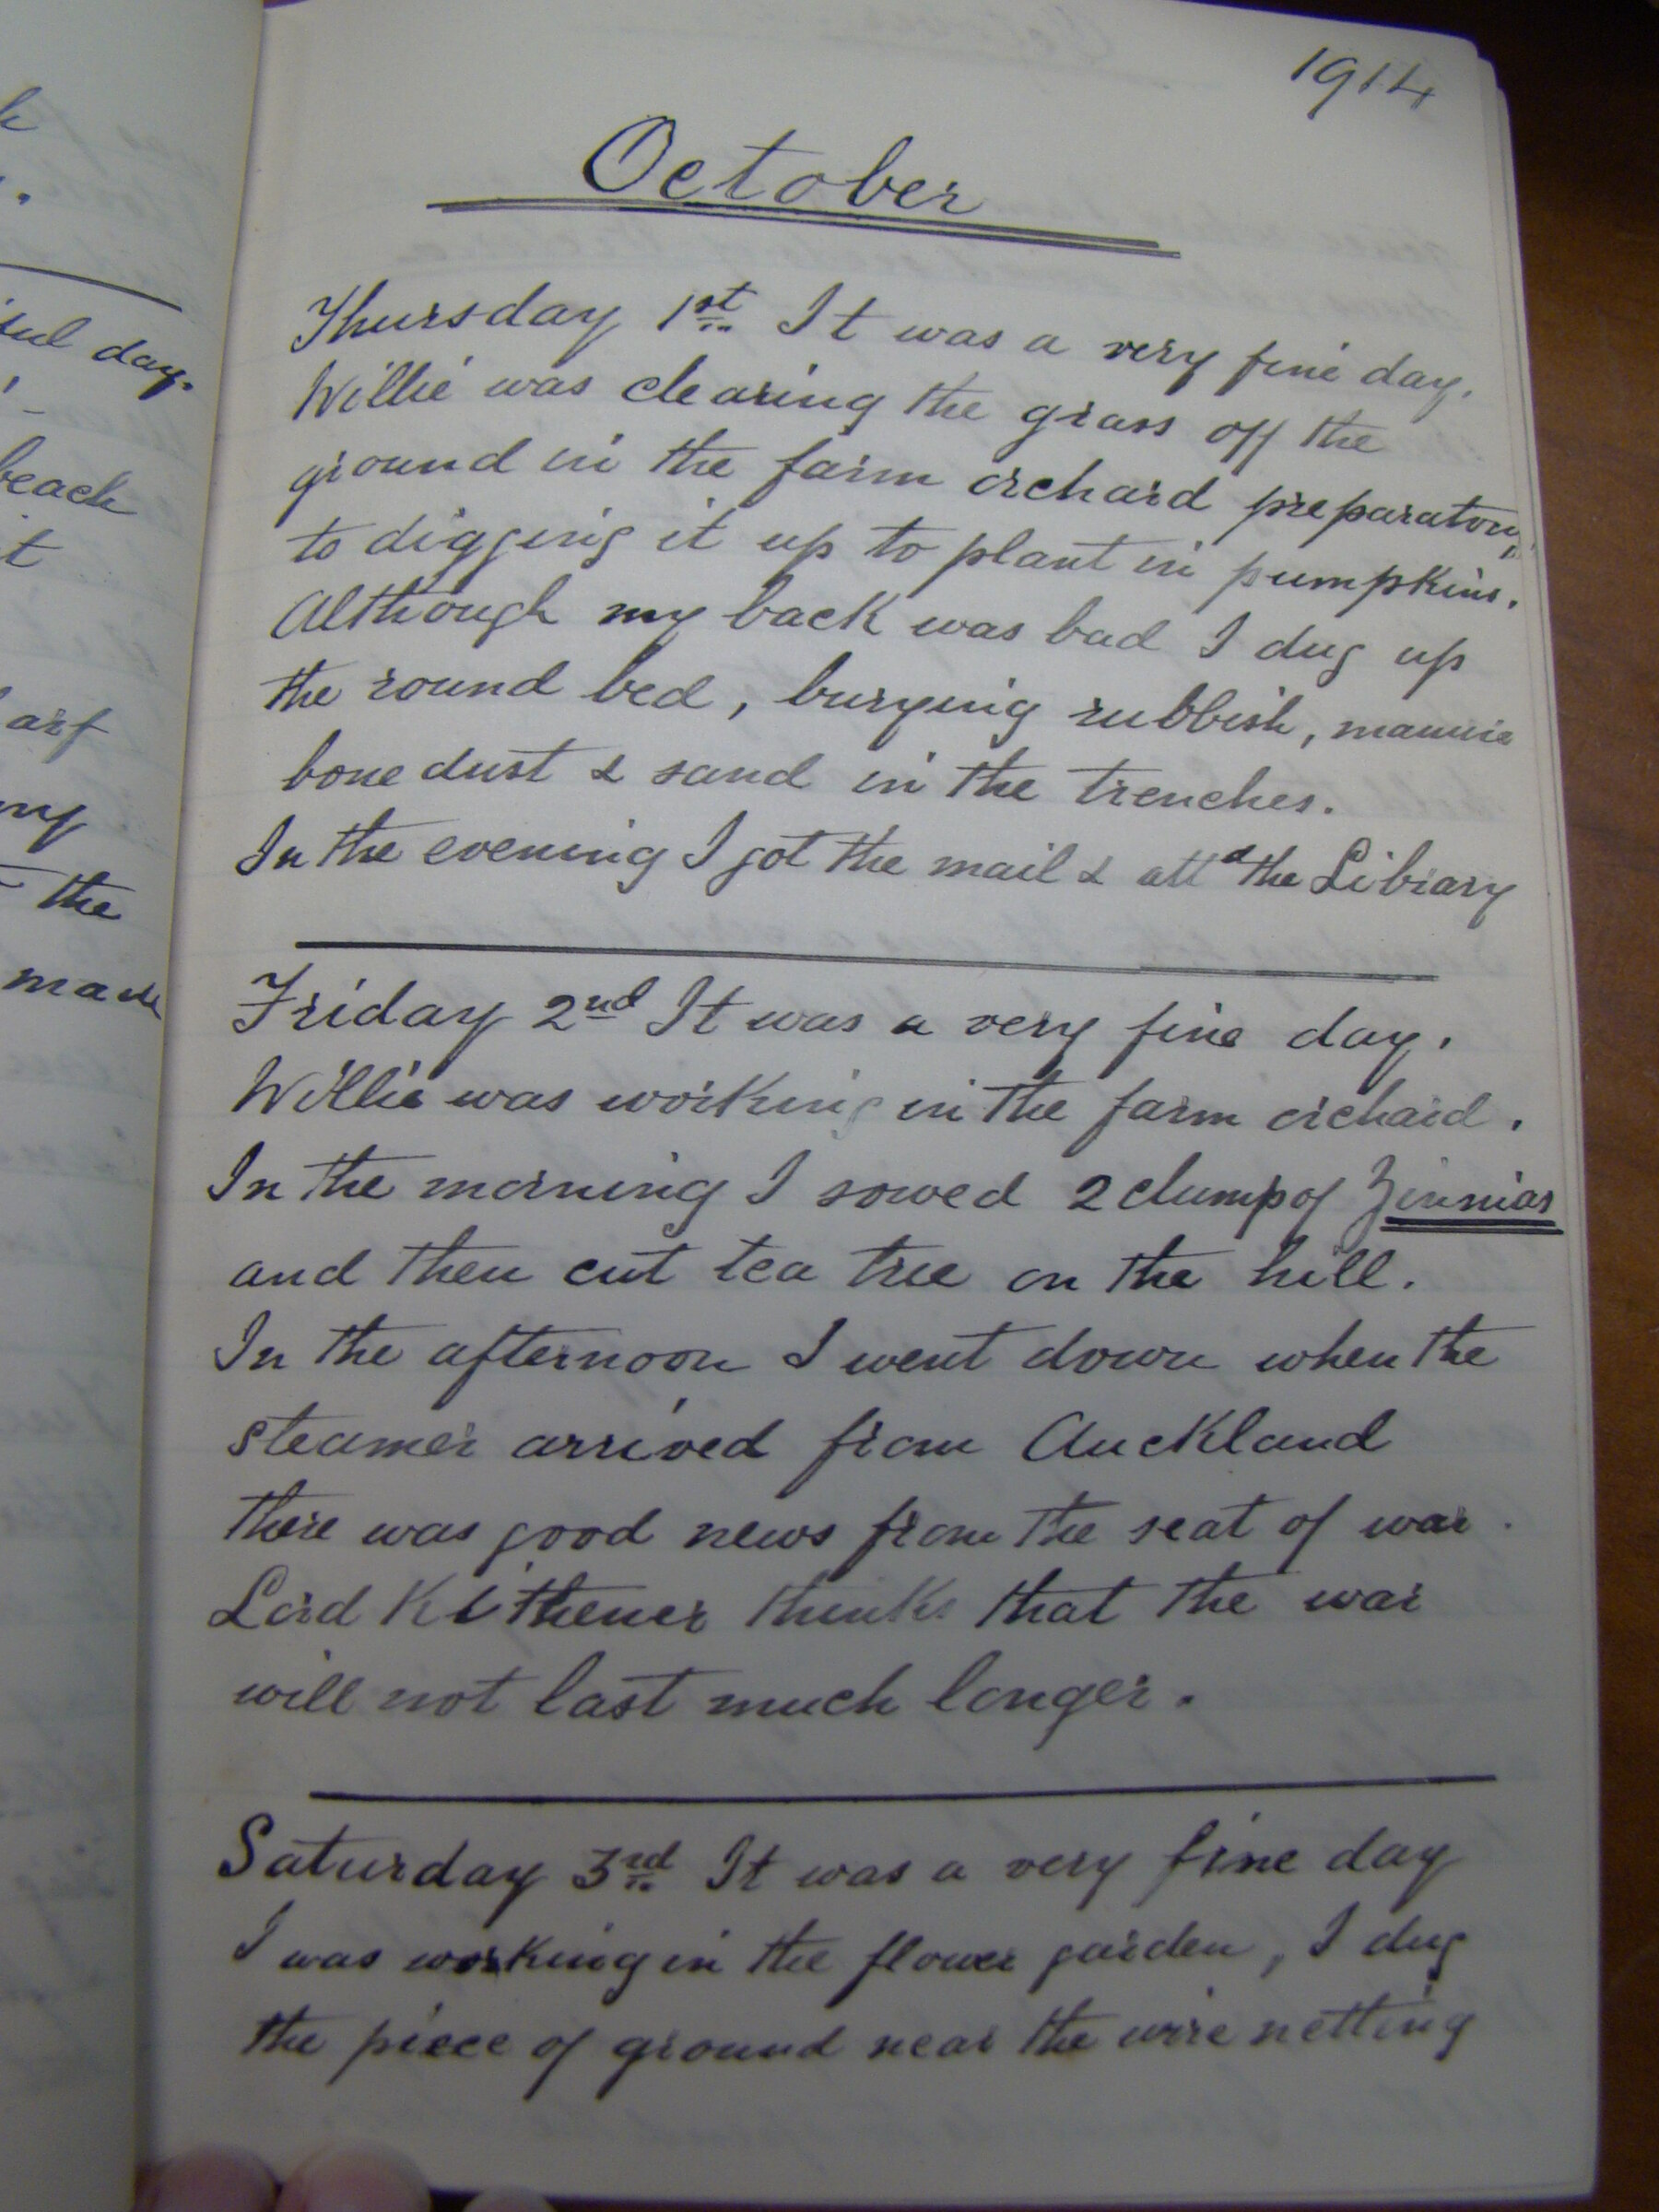 1914
October
Thursday 1st It was a very fine day.
Willie was clearing the grass off the
ground in the farm orchard preparatory
to digging it up to plant in pumpkins.
Although my back was bad I dug up
the round bed, burying rubbish, manure
bone dust & sand in the trenches.
In the evening I got the mail & attd the Library
Friday 2nd It was a very fine day.
Willie was working in the farm orchard.
In the morning I sowed 2 clump of Zinnias
and then cut tea tree on the hill.
In the afternoon I went down when the
steamer arrived from Auckland
There was good news from the seat of war.
Lord Kithener thinks that the war
will not last much longer.
Saturday 3rd It was a very fine day
I was working in the flower garden, I dug
the piece of ground near the wire netting
day.
beach
it
the
made